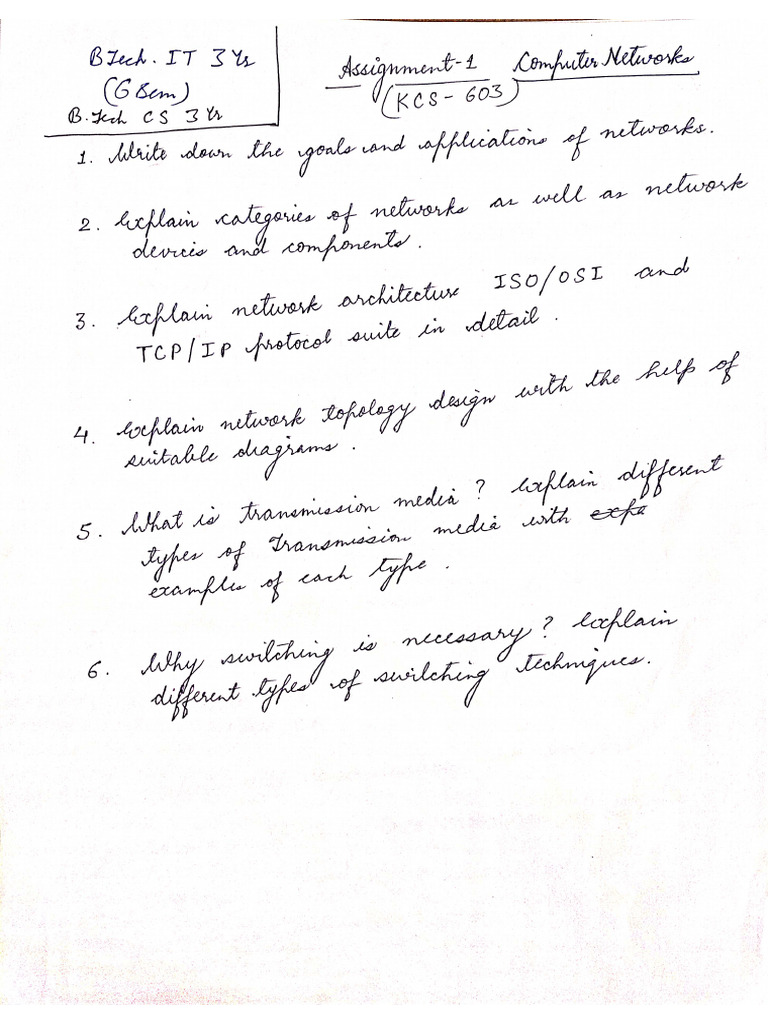 BTech. IT 3 Yr
(6 Sem)
B.Tech CS 3 Yr
Assignment-1 Computer Networks
(KCS-603)
1. Write down the goals and applications of networks.
2. Explain categories of networks as well as network
devices and components.
3. Explain network architecture ISO/OSI and
TCP/IP protocol suite in detail.
4. Explain network topology design with the help of
suitable diagrams.
5. What is transmission media? Explain different
types of Transmission media with
examples of each type.
6. Why switching is necessary? Explain
different types of switching techniques.